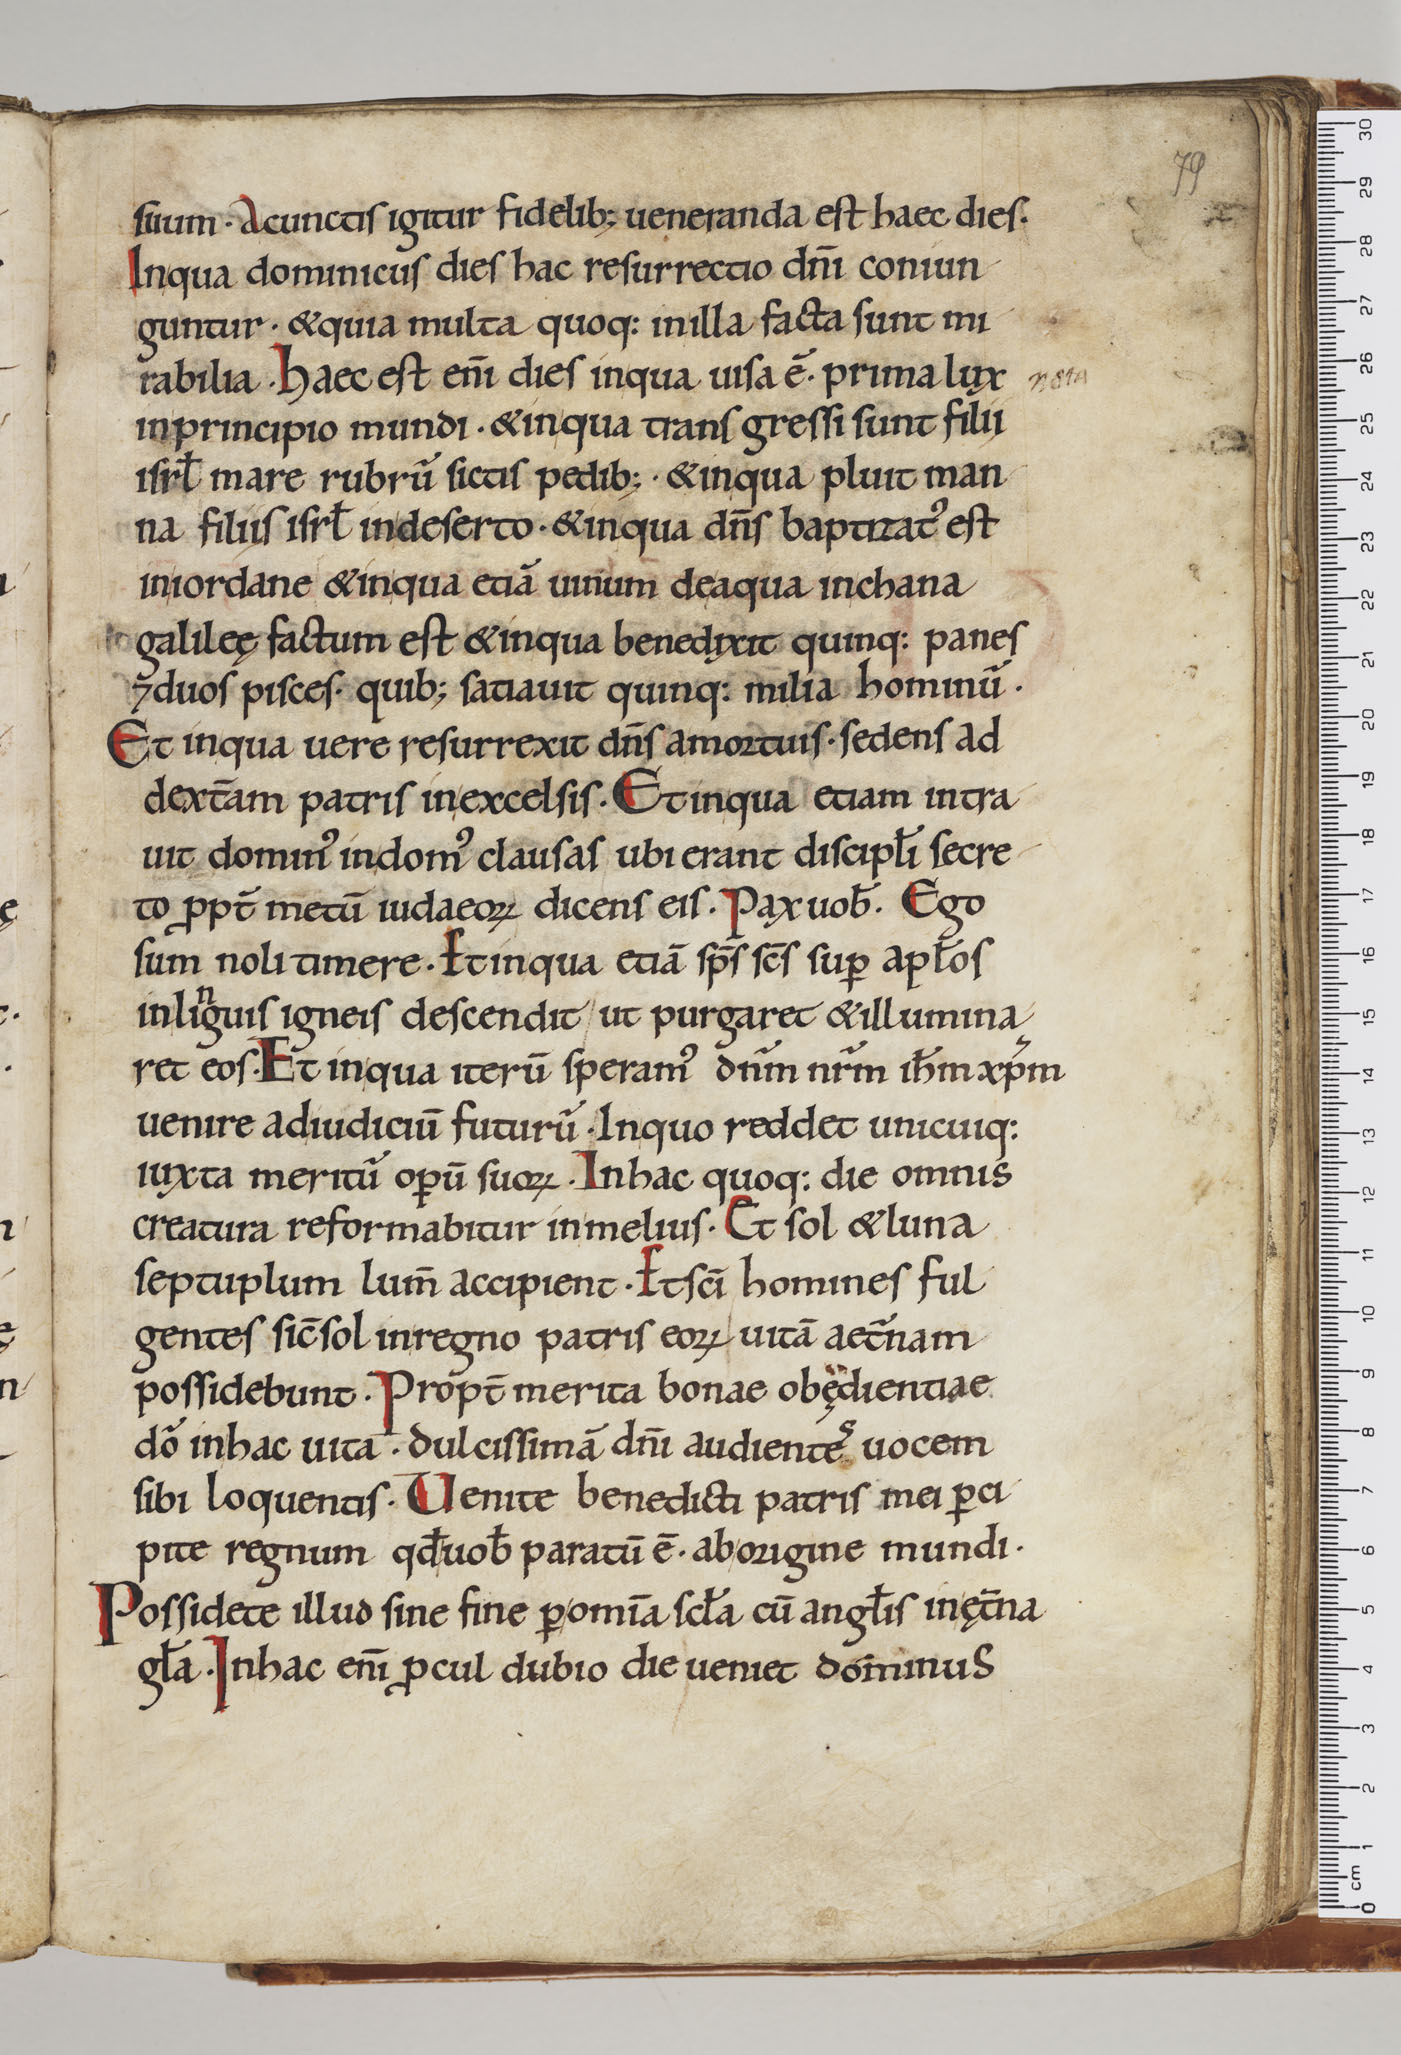 79
suum · Acunctis igitur fidelib; ueneranda est haec dies.
Inqua dominicus dies hac resurrectio dn̄i coniun
guntur · &quia multa quoq: inilla facta sunt mi
rabilia · haec est en̄i dies inqua uisa ē · prima lux
nota
inprincipio mundi · &inqua transgressi sunt filii
isrƚ mare rubrū sictis pedib; · &inqua pluit man
na filiis isrƚ indeserto · &inqua dn̄s baptizatꝰ est
iniordane &inqua etiā uinum deaqua inchana
galileę factum est &inqua benedixit quinq: panes
⁊duos pisces · quib; satiauit quinq: milia hominū ·
Et inqua uere resurrexit dn̄s amortuis · sedens ad
dext̄am patris inexcelsis · Et inqua etiam intra
uit dominꝰ indomꝰ clausas ubi erant discipƚi secre
to ꝓpt̄ metū iudaeoꝝ dicens eis · Pax uob̄ · Ego
sum noli timere · Et inqua etiā sp̄s sc̄s suꝑ apƚos
inlinguis igneis descendit ut purgaret &illumina
ret eos · Et inqua iterū speramꝰ dn̄m nr̄m ih̄m xp̄m
uenire adiudiciū futurū · Inquo reddet unicuiq:
iuxta meritū oꝑū suoꝝ · Inhac quoq: die omnis
creatura reformabitur inmelius · Et sol &luna
septuplum lum̄ accipient · Et sc̄i homines ful
gentes sic̄ sol inregno patris eoꝝ uitā aet̄nam
possidebunt · Propt̄ merita bonae obędientiae
dō inhac uita · dulcissimā dn̄i audientes uocem
sibi loquentis · Uenite benedicti patris mei ꝑci
pite regnum qđ uob̄ paratū ē · aborigine mundi ·
Possidete illud sine fine ꝑ om̄ia scƚa cū angƚis inęt̄na
gƚa · Inhac en̄i ꝓcul dubio die ueniet dominus